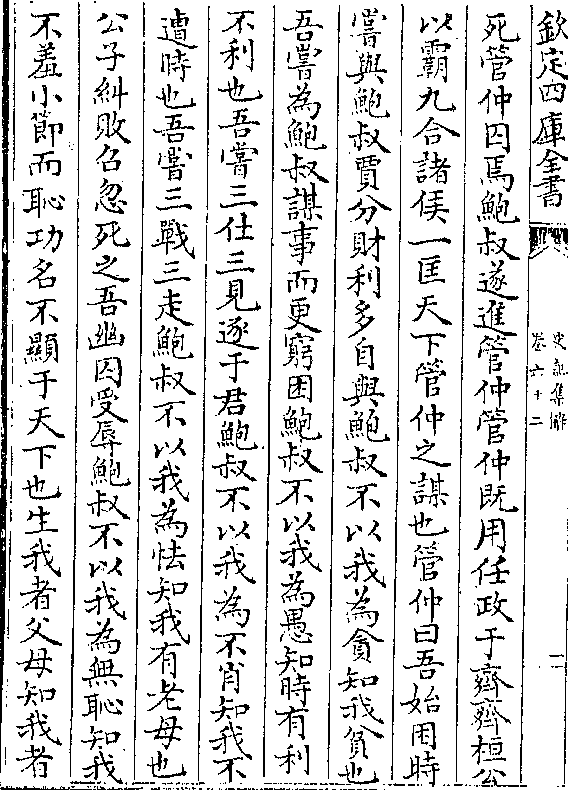 欽定四庫全書
史記集解
卷六十二
二
死管仲囚焉鮑叔遂進管仲管仲既用任政于齊齊桓公
以霸九合諸侯一匡天下管仲之謀也管仲曰吾始困時
嘗與鮑叔賈分財利多自與鮑叔不以我為貪知我貧也
吾嘗為鮑叔謀事而更窮困鮑叔不以我為愚知時有利
不利也吾嘗三仕三見逐于君鮑叔不以我為不肖知我不
遭時也吾嘗三戰三走鮑叔不以我為怯知我有老母也
公子糾敗召忽死之吾幽囚受辱鮑叔不以我為無恥知我
不羞小節而恥功名不顯于天下也生我者父母知我者